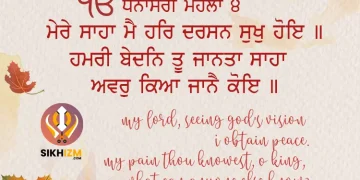 ੴ ਧਨਾਸਰੀ ਮਹਲਾ ੪
ਮੇਰੇ ਸਾਹਾ ਮੈ ਹਰਿ ਦਰਸਨ ਸੁਖੁ ਹੋਇ ॥
ਹਮਰੀ ਬੇਦਨਿ ਤੂ ਜਾਨਤਾ ਸਾਹਾ
ਅਵਰੁ ਕਿਆ ਜਾਨੈ ਕੋਇ ॥
my lord, seeing god's vision
i obtain peace.
my pain thou knowest, o king,
SIKHIZM
.COM